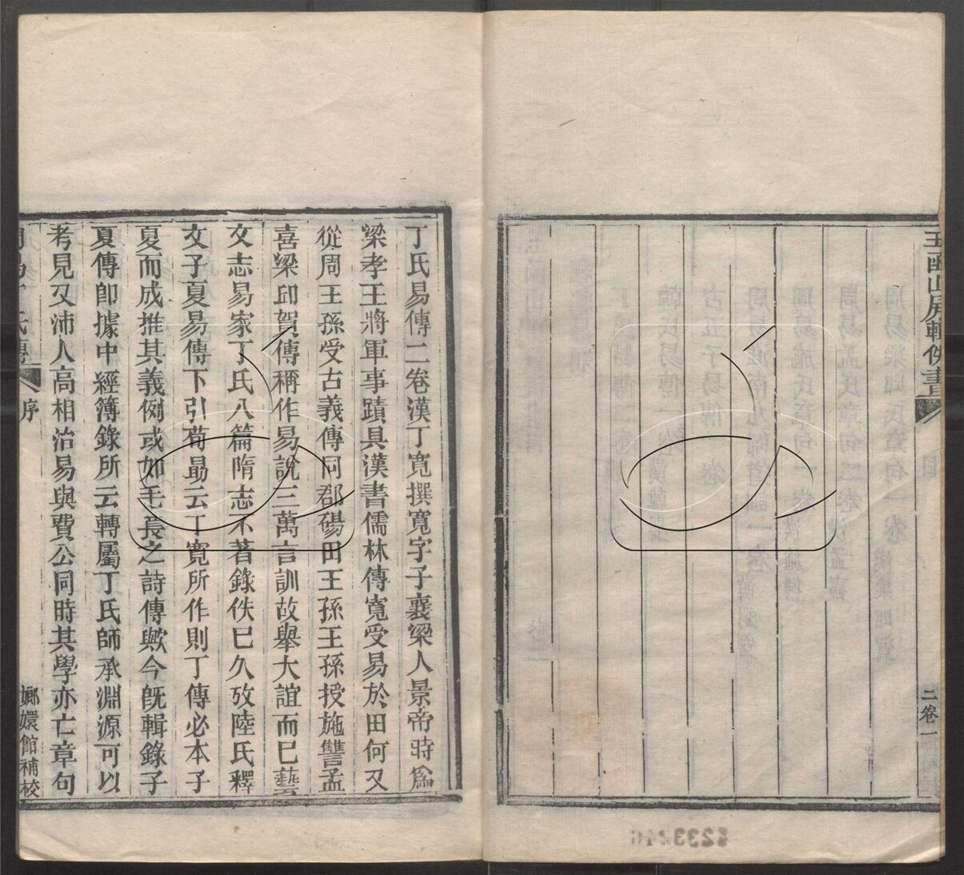 玉函山房輯佚書
目
二卷一
丁氏易傳二卷漢丁寬撰寬字子襄梁人景帝時為
梁孝王將軍事蹟具漢書儒林傳寬受易於田何又
從周王孫受古義傳同郡碭田王孫王孫授施讐孟
喜梁邱賀傳稱作易說三萬言訓故舉大誼而巳藝
文志易家丁氏八篇隋志不著錄佚巳久攷陸氏釋
文子夏易傳下引荀勗云丁寬所作則丁傳必本子
夏而成推其義例或如毛萇之詩傳歟今旣輯錄子
夏傳卽據中經簿錄所云轉屬丁氏師承淵源可以
考見又沛人高相治易與費公同時其學亦亡章句
周易丁氏傳
序
嫏嬛館補校